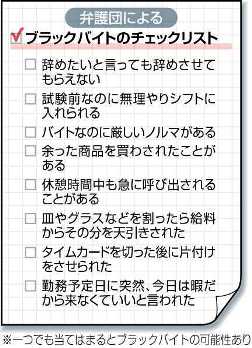 弁護団による
ブラックバイトのチェックリスト
□ 辞めたいと言っても辞めさせて
もらえない
□ 試験前なのに無理やりシフトに
入れられる
□ バイトなのに厳しいノルマがある
□ 余った商品を買わされたことが
ある
□ 休憩時間中も急に呼び出される
ことがある
□ 皿やグラスなどを割ったら給料
からその分を天引きされた
□ タイムカードを切った後に片付け
をさせられた
□ 勤務予定日に突然、今日は暇だ
から来なくていいと言われた
※一つでも当てはまるとブラックバイトの可能性あり